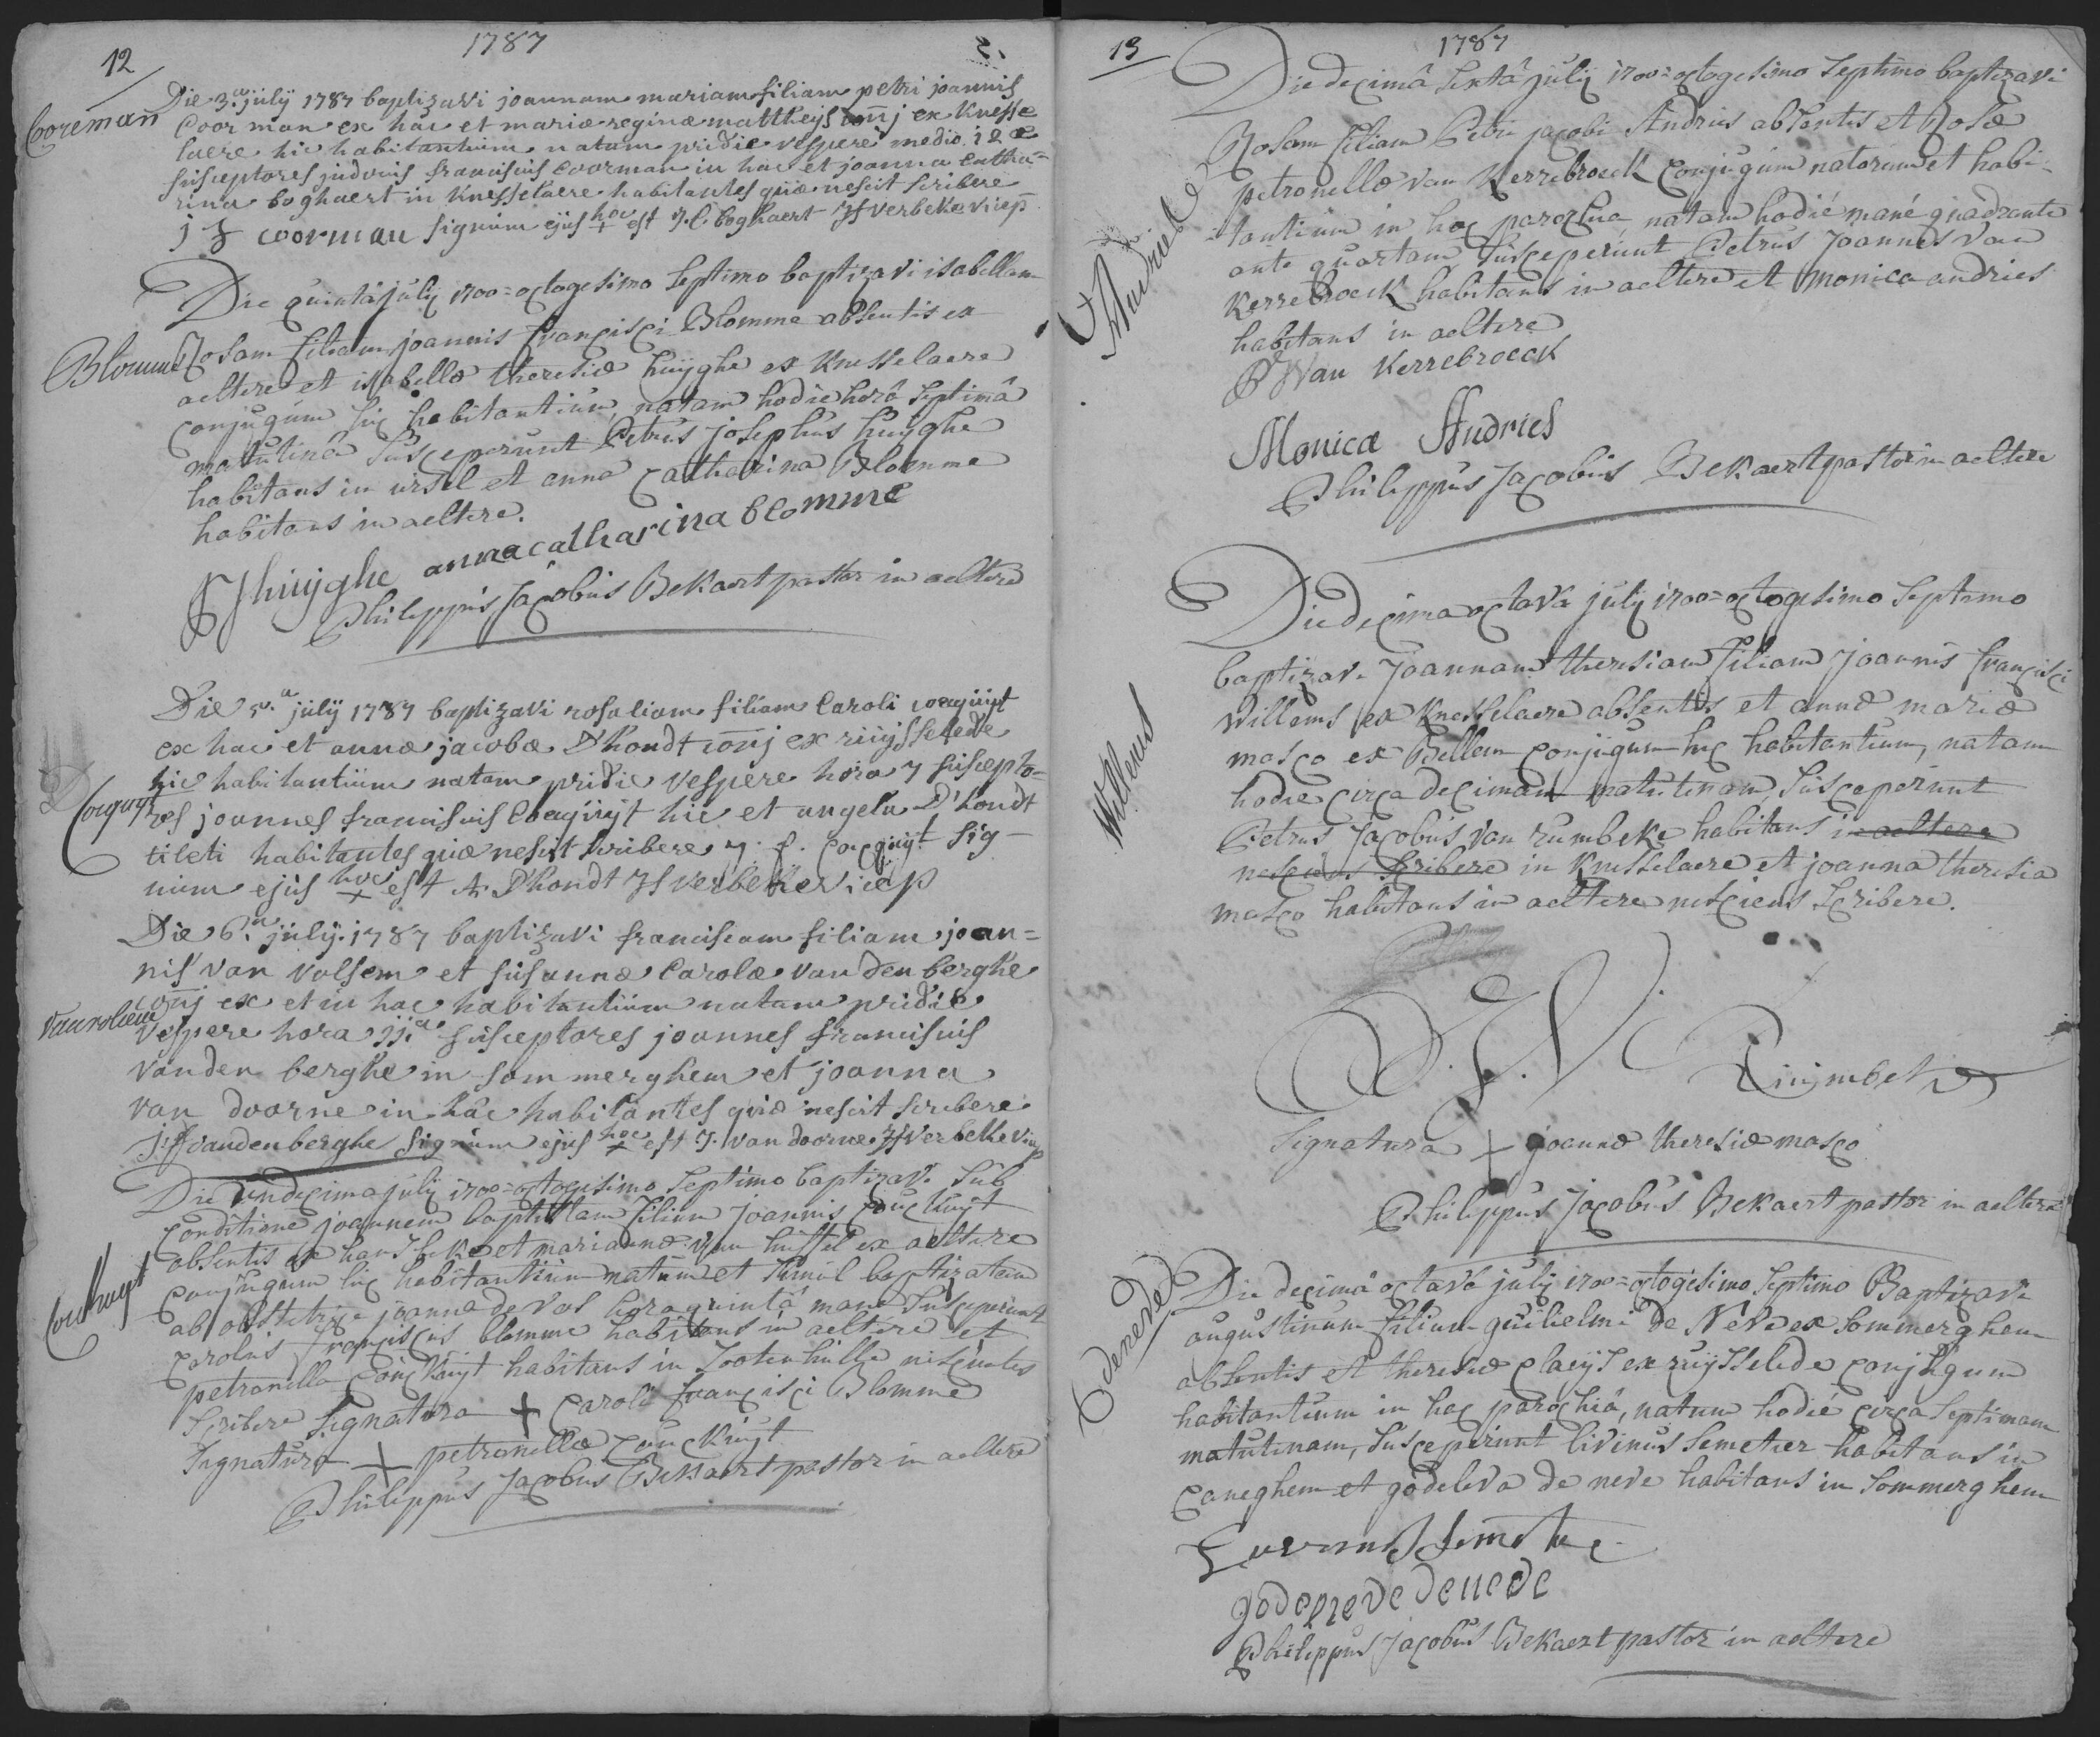 12
1787
2.
Cooreman
Die 3.a july 1787 baptizavi joannam mariam filiam petri joannis
Coorman ex hac et mariæ reginæ mattheijs conj ex Knesse
laere hic habitantium natam pridie vespere medio 12æ
susceptores judocus franciscus coorman in hac et joanna catha=
rina boghaert in Knesselaere habitantes quæ nescit scribere
j f coorman signum ejus hoc + est J.C. boghaert Jf verbeke vicep
Blomme
Die quintâ july 1700=octogesimo septimo baptizavi isabellam
Rosam filiam joannis francisci Blomme absentis ex
aeltere et isabellæ theresiæ huijghe ex Knesselaere
conjugum hic habitantium, natam hodie horâ septimâ
matutinâ susceperunt Petrus josephus huijghe
habitans in ursel et anna catharina Blomme
habitans in aeltere.
PJ huijghe anna catharina blomme
Philippus Jacobus Bekaert pastor in aeltere
Coquyt
Die 5.a july 1787 baptizavi rosaliam filiam Caroli cocquijt
ex hac et annæ jacobæ D'hondt conj ex ruijsselede
hic habitantium natam pridie vespere hora 7 suscepto=
res joannes franciscus Cocquijt hic et angela D'hondt
tileti habitantes quæ nescit scribere j. f. Cocquijt sig-
num ejus hoc + est A. D'hondt Jf verbeke vicep
Die 6.a july 1787 baptizavi franciscam filiam joan=
nis van volsem et susannæ Carolæ van den berghe
conj ex et in hac habitantium natam pridie
vespere hora 11.a susceptores joannes franciscus
vanden berghe in sommerghem et joanna
van doorne in hac habitantes quæ nescit scribere
j f vandenberghe signum ejus hoc + est J. van doorne Jf verbeke vicep
Couckuyt
Die undecima july 1700=octogesimo septimo baptizavi sub
conditione joannem baptistam filium joannis couckuijt
absentis ex hansbeke et mariannæ van huffel ex aeltere
conjugum hic habitantium natum et simul baptizatum
ab obstetrice joanna de vos hora quintâ mane susceperunt
carolus franciscus blomme habitans in aeltere et
petronilla couckuijt habitans in Lootenhulle nescientes
scribere signatura + caroli francisci Blomme
signatura + petronillæ couckuijt
Philippus Jacobus Bekaert pastor in aeltere
13
1787
Andries
Die decimâ sextâ july 1700=octogesimo septimo baptizavi
Rosam filiam Petri jacobi Andries absentis et Rosæ
petronillæ van Kerrebroeck conjugum natorum et habi-
tantium in hac parochia, natam hodié mané quadrante
ante quartam, susceperunt Petrus Joannes van
Kerrebroeck habitans in aeltere et Monica andries
habitans in aeltere
PJ Van Kerrebroeck
Monica Andries
Philippus Jacobus Bekaert pastor in aeltere
Willems
Die decima octava july 1700=octogesimo septimo
baptizavi Joannam theresiam filiam Joannis francisci
willems ex Knesselaere absentis et annæ mariæ
masco ex Bellem conjugum hic habitantium, natam
hodie circa decimam matutinam, susceperunt
Petrus Jacobus van rumbeke habitans in aeltere
nesciens scribere in Knesselaere et joanna theresia
masco habitans in aeltere nesciens scribere.
signatura + joannæ theresiæ masco
Philippus Jacobus Bekaert pastor in aeltere
Deneve
Die decimâ octavâ july 1700=octogesimo septimo Baptizavi
augustinum filium guilielmi De Neve ex sommerghem
absentis et theresiæ claeijs ex ruijsselede conjugum
habitantium in hac parochiâ, natum hodié circa septimam
matutinam, susceperunt livinus semetier habitans in
caneghem et godeleva de neve habitans in sommerghem
godeleve deneve
Philippus Jacobus Bekaert pastor in aeltere